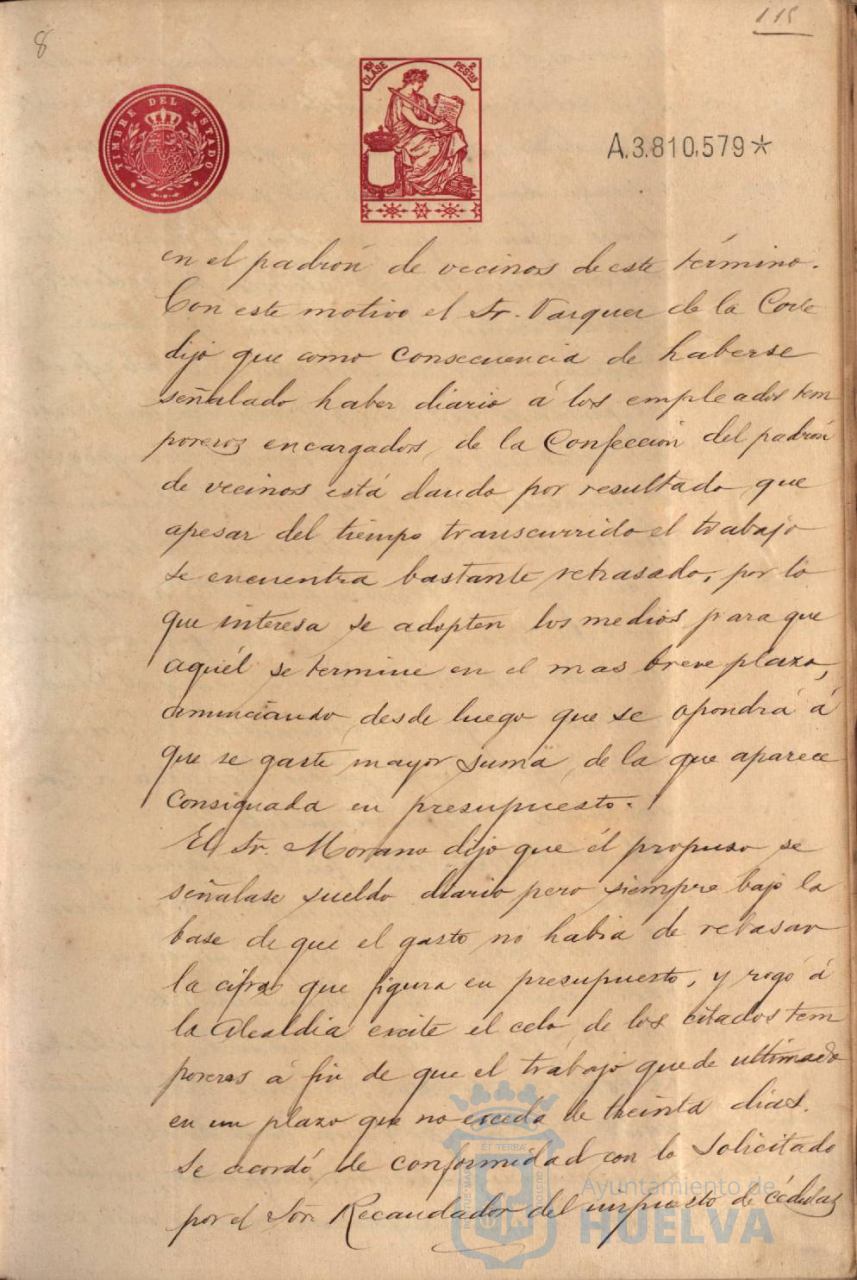 8
115
TIMBRE DEL ESTADO
10ª CLASE
2 PESTAS
A.3.810,579*
en el padrón de vecinos de este término.
Con este motivo el Sr. Vazquez de la Corte
dijo que como consecuencia de haberse
señalado haber diario á los empleados tem
poreros encargados de la Confección del padrón
de vecinos está dando por resultado que
apesar del tiempo transcurrido el trabajo
se encuentra bastante retrasado, por lo
que interesa se adopten los medios para que
aquél se termine en el mas breve plazo,
anunciando desde luego que se opondrá á
que se gaste mayor suma de la que aparece
consignada en presupuesto.
El Sr. Morano dijo que él propuso se
señalase sueldo diario pero siempre bajo la
base de que el gasto no habia de rebasar
la cifra que figura en presupuesto, y rogó á
la Alcaldia excite el celo de los citados tem
poreros á fin de que el trabajo quede ultimado
en un plazo que no exceda de treinta dias.
Se acordó de conformidad con lo solicitado
por el Sor. Recaudador del impuesto de cédulas
Ayuntamiento de
HUELVA